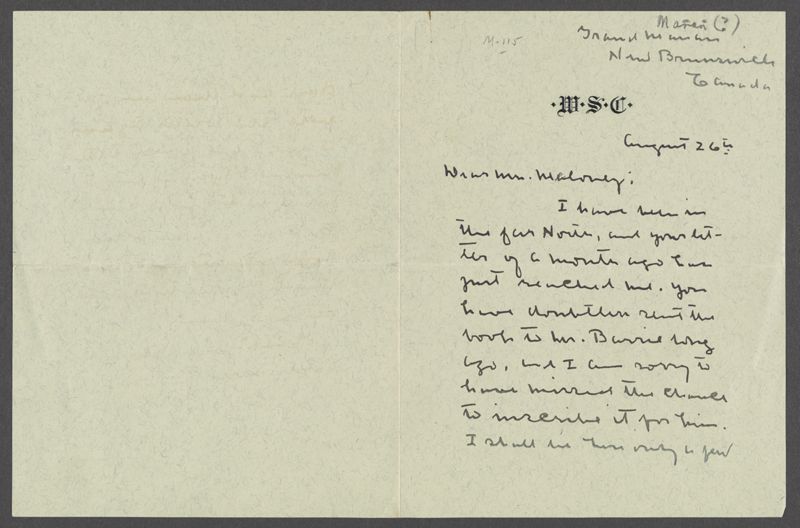 Manan (?)
Grand Manan
New Brunswick
Canada
M-115
·W·S·C·
August 26th
Dear Mrs. Maloney:
I have been in
the far North, and your let-
ter of a month ago has
just reached me. You
have doubtless sent the
book to Mr. Barrie long
ago, and I am sorry to
have missed the chance
to inscribe it for him.
I shall be here only a few